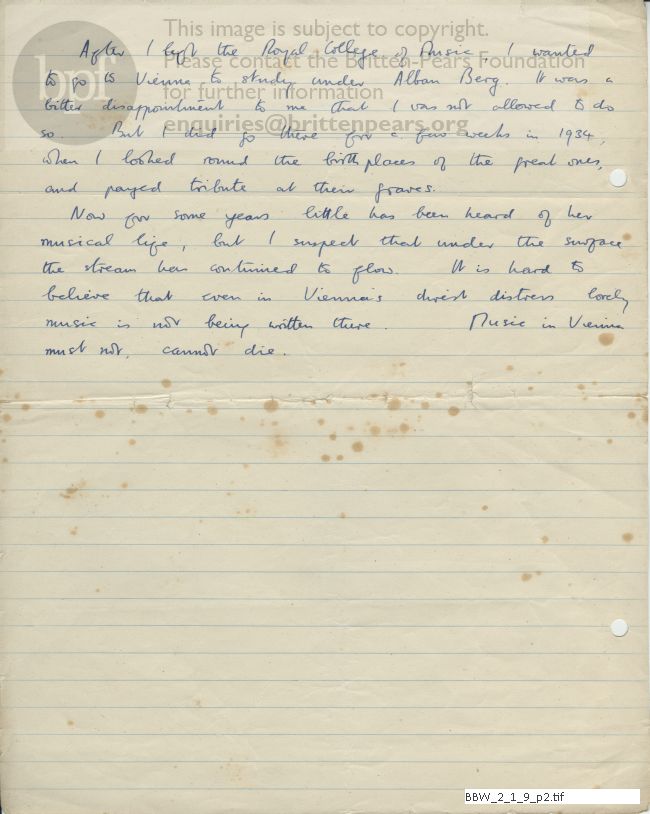 This image is subject to copyright.
Please contact the Britten-Pears Foundation
for further information
enquiries@brittenpears.org
bpf
After I left the Royal College of Music, I wanted
to go to Vienna to study under Alban Berg. It was a
bitter disappointment to me that I was not allowed to do
so. But I did go there for a few weeks in 1934,
when I looked round the birthplaces of the great ones,
and payed tribute at their graves.
Now for some years little has been heard of her
musical life, but I suspect that under the surface
the stream has continued to flow. It is hard to
believe that even in Vienna's direst distress lovely
music is not being written there. Music in Vienna
must not, cannot die.
BBW_2_1_9_p2.tif